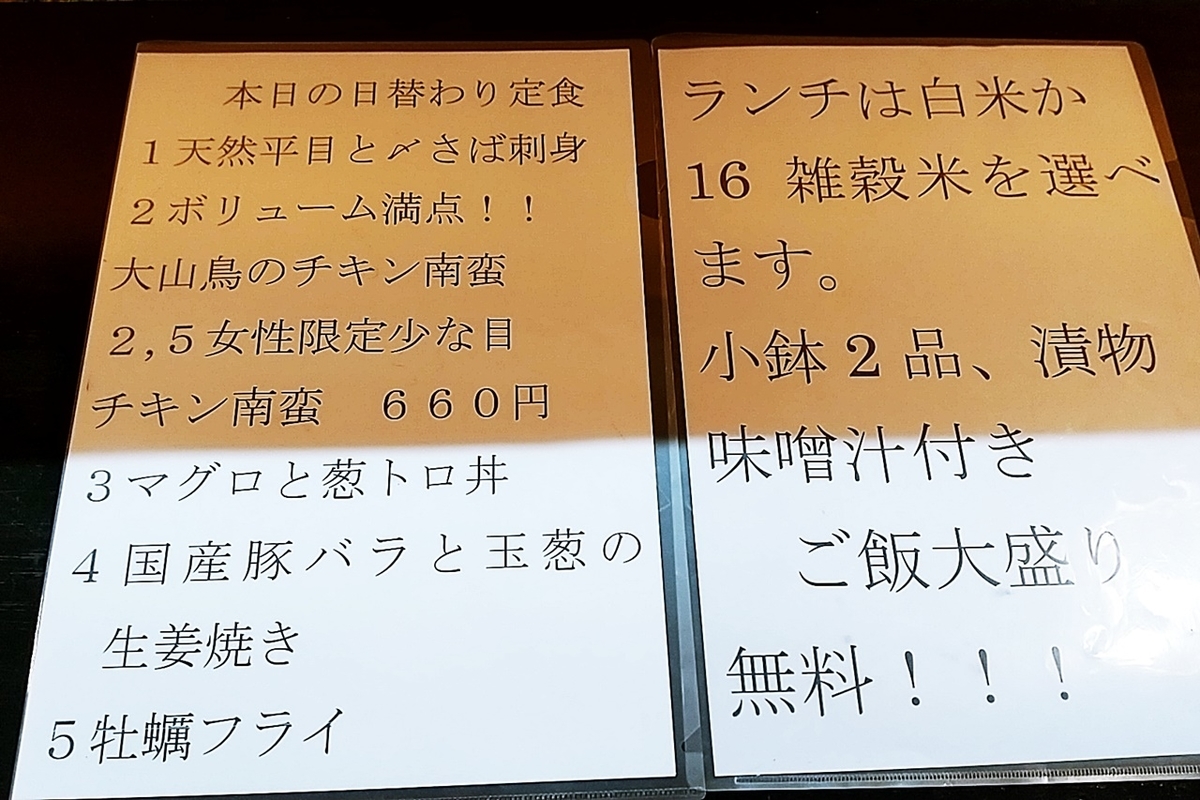 本日の日替わり定食
1天然平目と〆さば刺身
2ボリューム満点！！
大山鳥のチキン南蛮
2,5女性限定少な目
チキン南蛮　６６０円
3マグロと葱トロ丼
4国産豚バラと玉葱の
生姜焼き
5牡蠣フライ
ランチは白米か
16 雑穀米を選べ
ます。
小鉢2品、漬物
味噌汁付き
ご飯大盛り
無料！！！